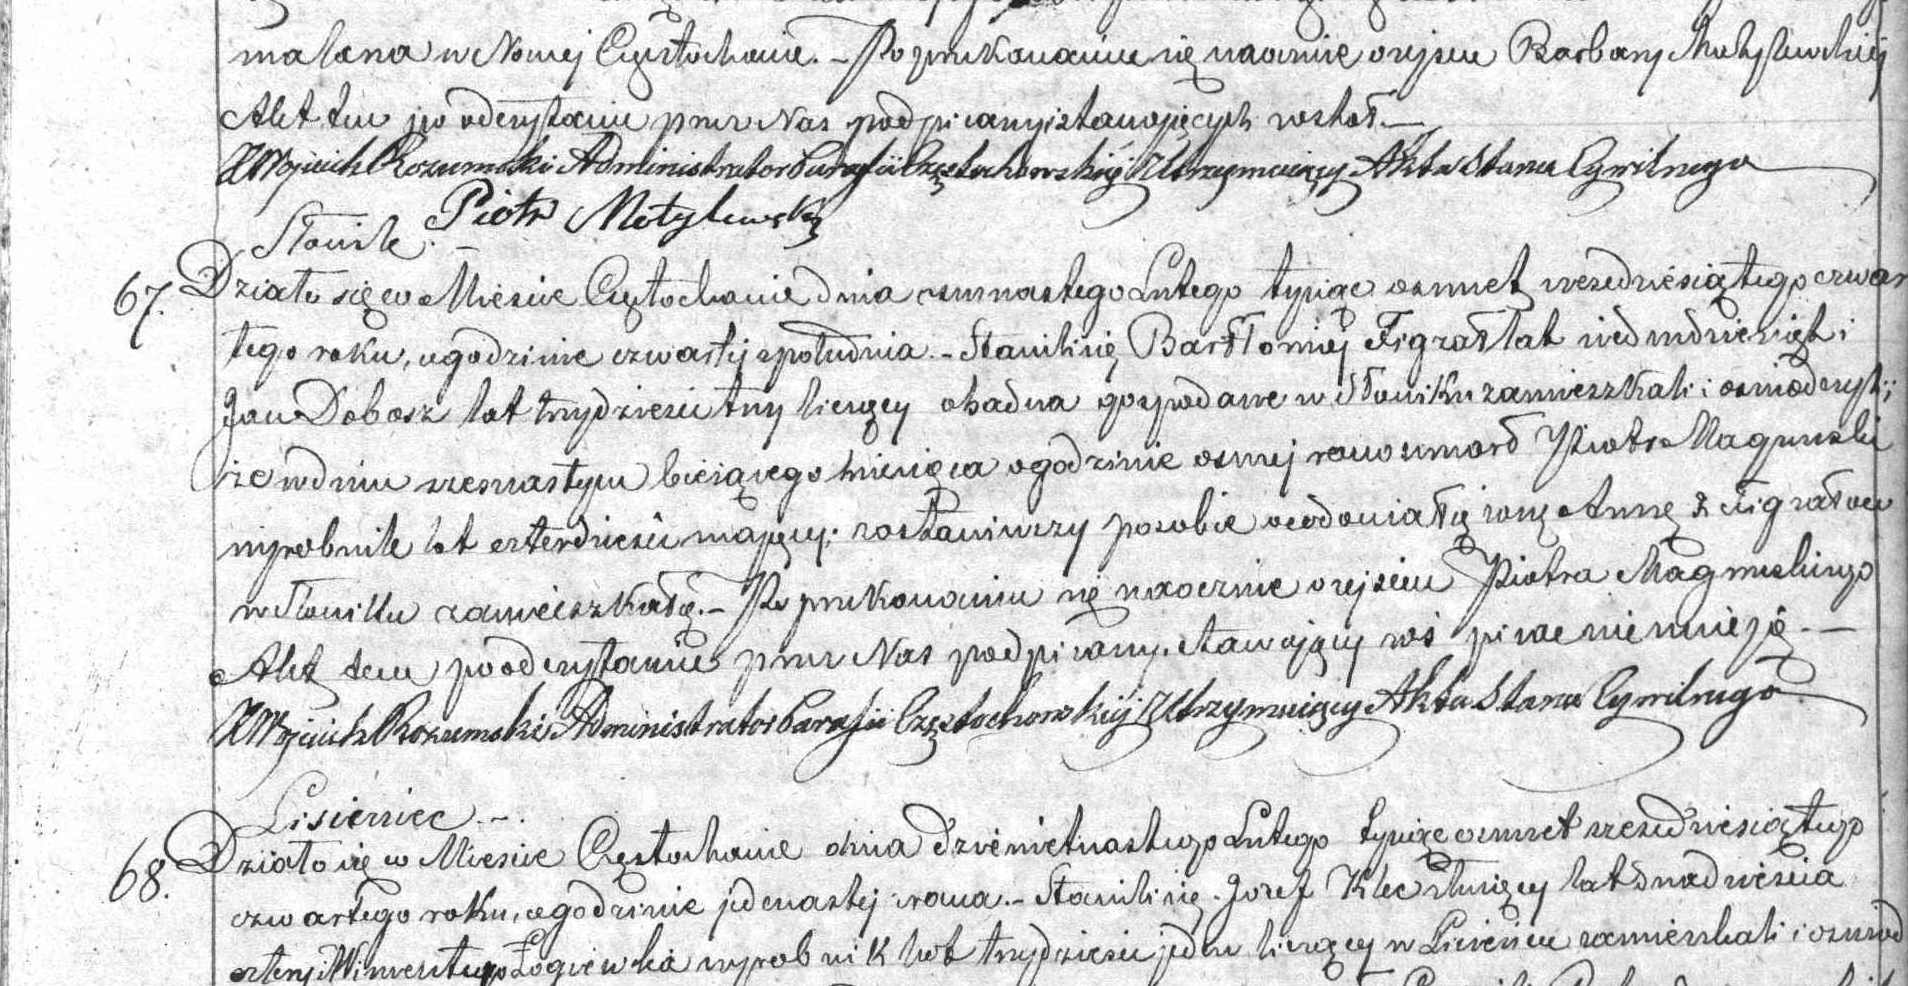 malara w Nowej Częstochowie. – Po przekonaniu się naocznie o zejściu Barbary Motylewskiej
Akt ten po odczytaniu przez Nas podpisany i stawających został. –
X Wojciech Rozumski Administrator Parafii Częstochowskiej Utrzymujący Akta Stanu Cywilnego
Piotr Motylewski
Stowik. –
67. Działo się w Mieście Częstochowie dnia osmnastego Lutego tysiąc osmset sześćdziesiątego czwar
tego roku, o godzinie czwartej z południa. – Stawili się Bartłomiej Figzał lat siedmdziesiąt i
Jan Dobosz lat trzydzieści trzy liczący obadwa gospodarze w Słowiku zamieszkali i oświadczyli;
że w dniu szesnastym bieżącego miesiąca o godzinie osmej rano umarł Piotr Magnuski
wyrobnik lat czterdzieści mający; zostawiwszy po sobie owdowiałą żonę Annę z Figzałów
w Słowiku zamieszkałą. – Po przekonaniu się naocznie o zejściu Piotra Magnuskiego
Akt ten po odczytaniu przez Nas podpisany, stawający zaś pisać nie umieją. –
X Wojciech Rozumski Administrator Parafii Częstochowskiej Utrzymujący Akta Stanu Cywilnego
Lisieniec. –
68. Działo się w Mieście Częstochowie dnia dziewietnastego Lutego tysiąc osmset sześćdziesiątego
czwartego roku, o godzinie jedenastej z rana. – Stawili się Jozef Klec służący lat dwadzieścia
cztery i Wincenty Łogiewka wyrobnik lat trzydzieści jeden liczący w Lisieńcu zamieszkali i oświad